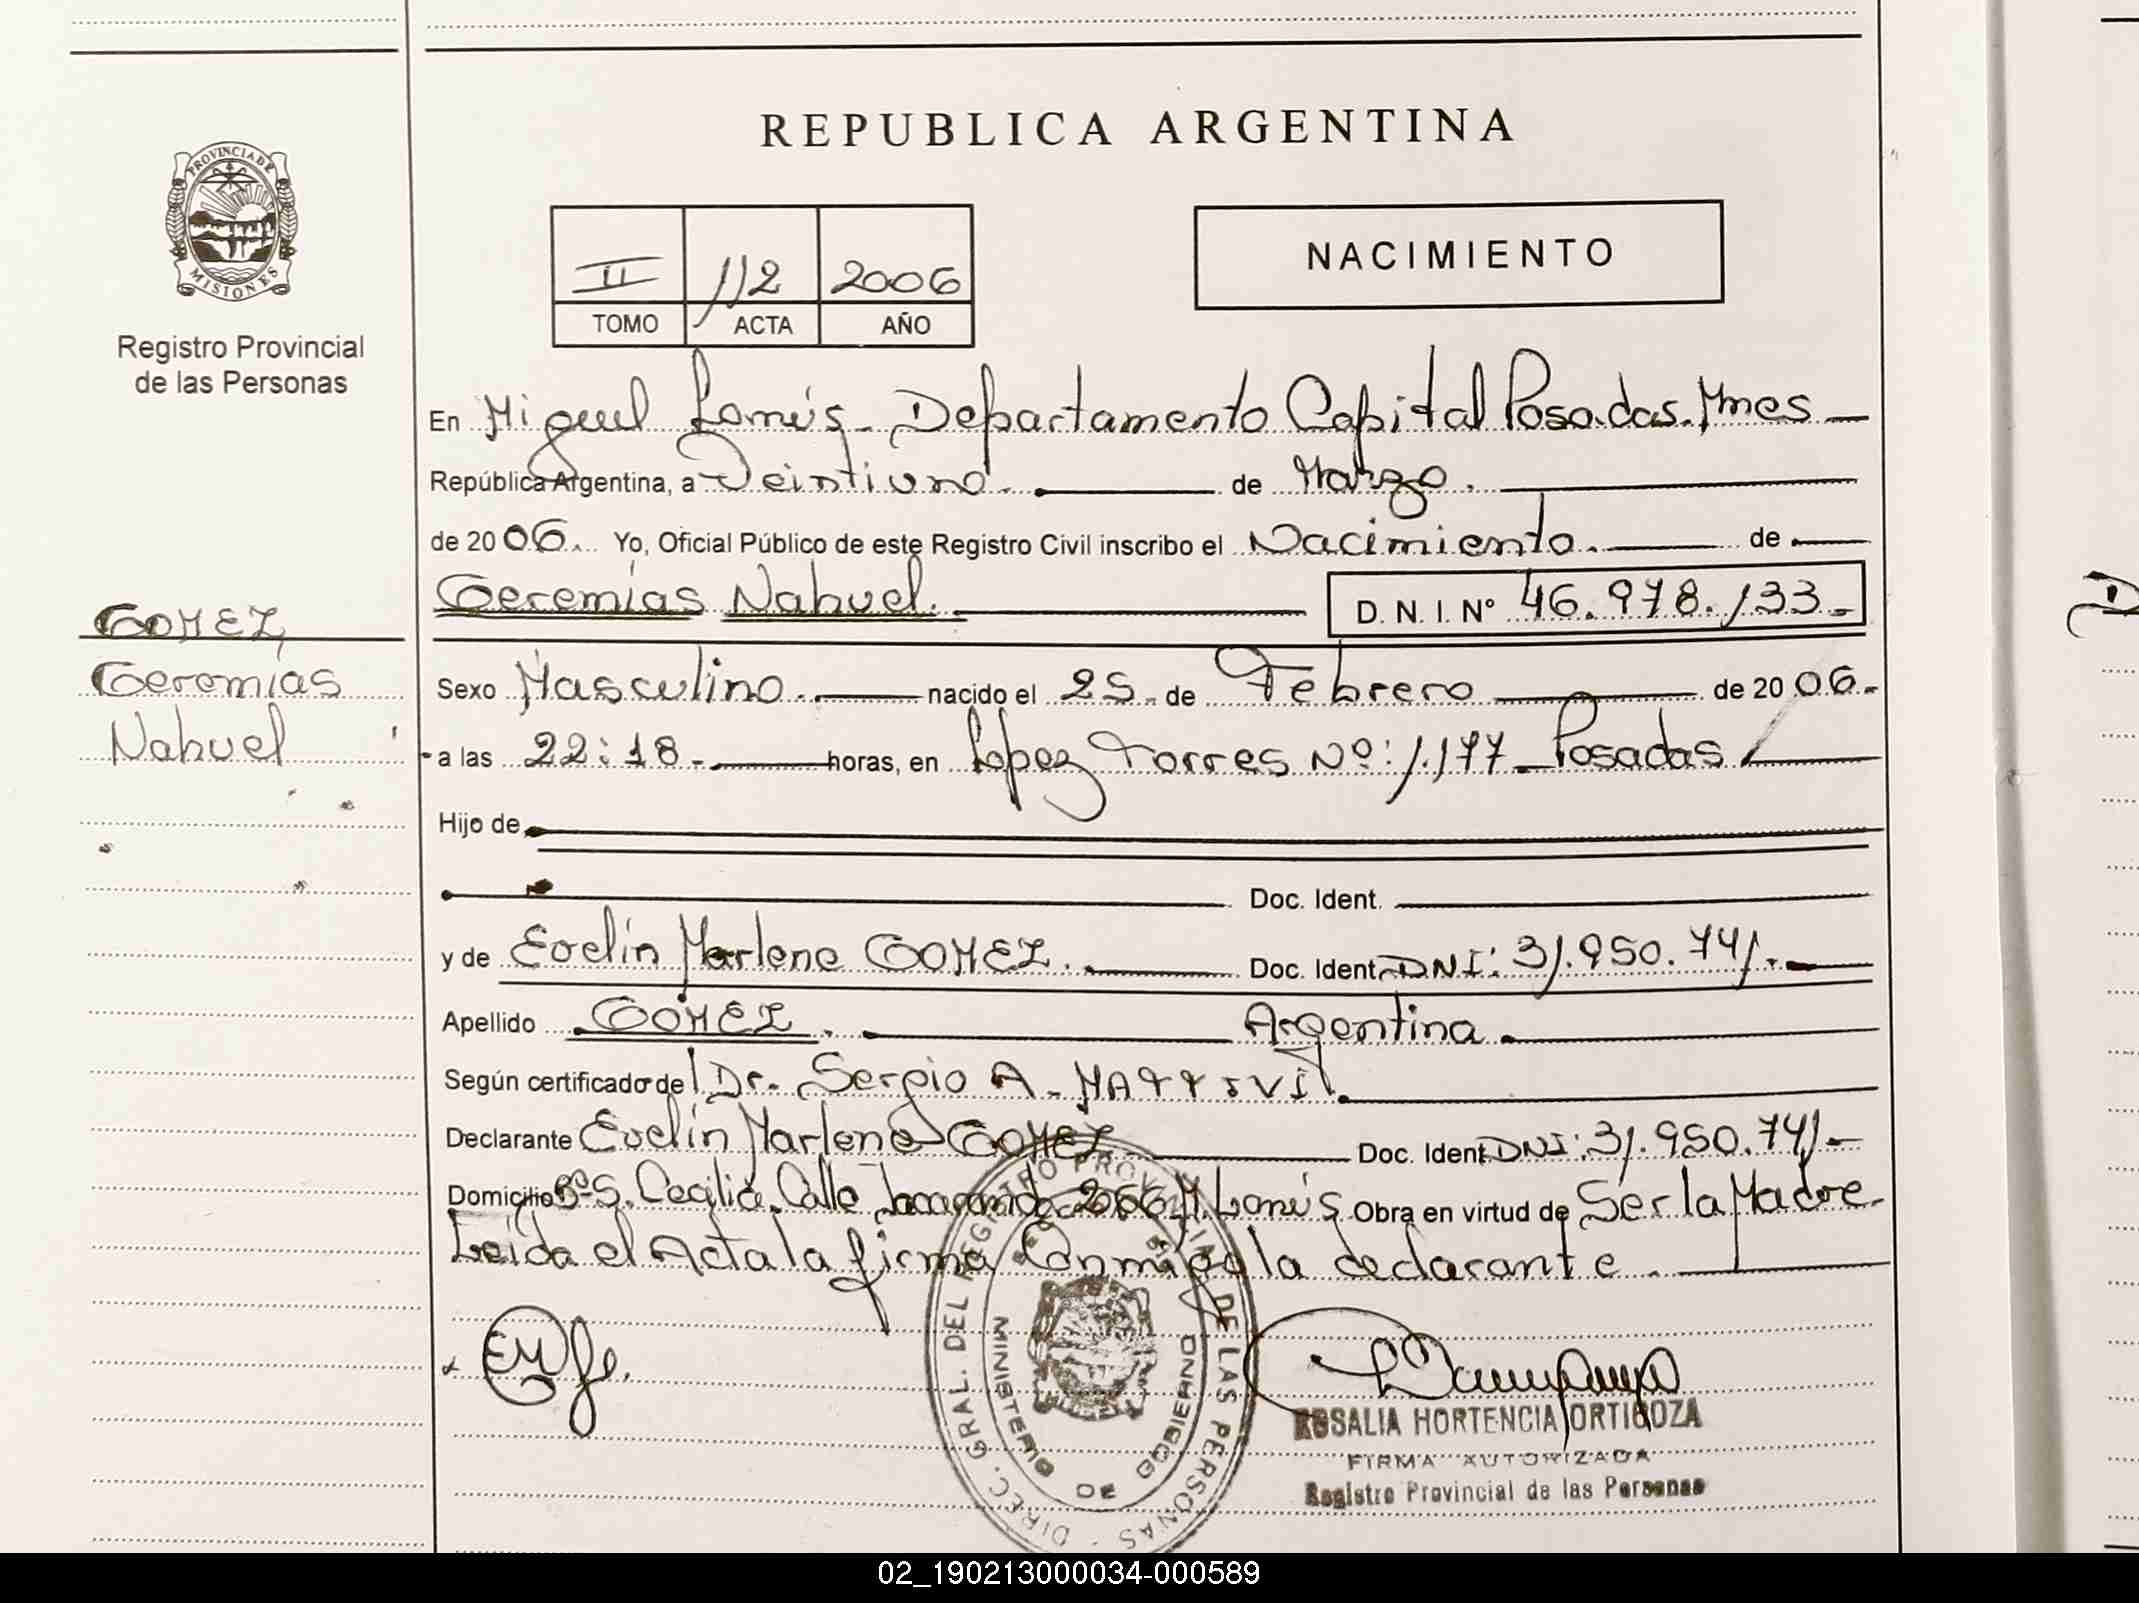 REPUBLICA ARGENTINA
PROVINCIA DE
MISIONES
Registro Provincial
de las Personas
II 112 2006
TOMO ACTA AÑO
NACIMIENTO
En Miguel Lanús - Departamento Capital Posadas. Mnes
República Argentina, a Veintiuno. de Marzo.
de 2006. Yo, Oficial Público de este Registro Civil inscribo el Nacimiento. de
Geremías Nahuel. D. N. I. Nº 46.978.133-
GOMEZ,
Geremías
Nahuel
Sexo Masculino. nacido el 25- de Febrero de 2006.-
- a las 22:18- horas, en Lopez Torres Nº: 1.177 - Posadas
Hijo de
Doc. Ident.
y de Evelin Marlene GOMEZ. Doc. Ident. DNI: 31.950.741.-
Apellido GOMEZ. Argentina.
Según certificado del Dr. Sergio A.
Declarante Evelin Marlene GOMEZ Doc. Ident. DNI: 31.950.741-
Domicilio Bº S. Cecilia. Calle Jacarandá 266 M. Lanús Obra en virtud de Ser la Madre-
Leída el Acta la firma Conmigo la declarante.
DIREC. GRAL. DEL REGISTRO PROVINCIAL DE LAS PERSONAS
MINISTERIO DE GOBIERNO
ROSALIA HORTENCIA ORTIGOZA
FIRMA AUTORIZADA
Registro Provincial de las Personas
02_190213000034-000589